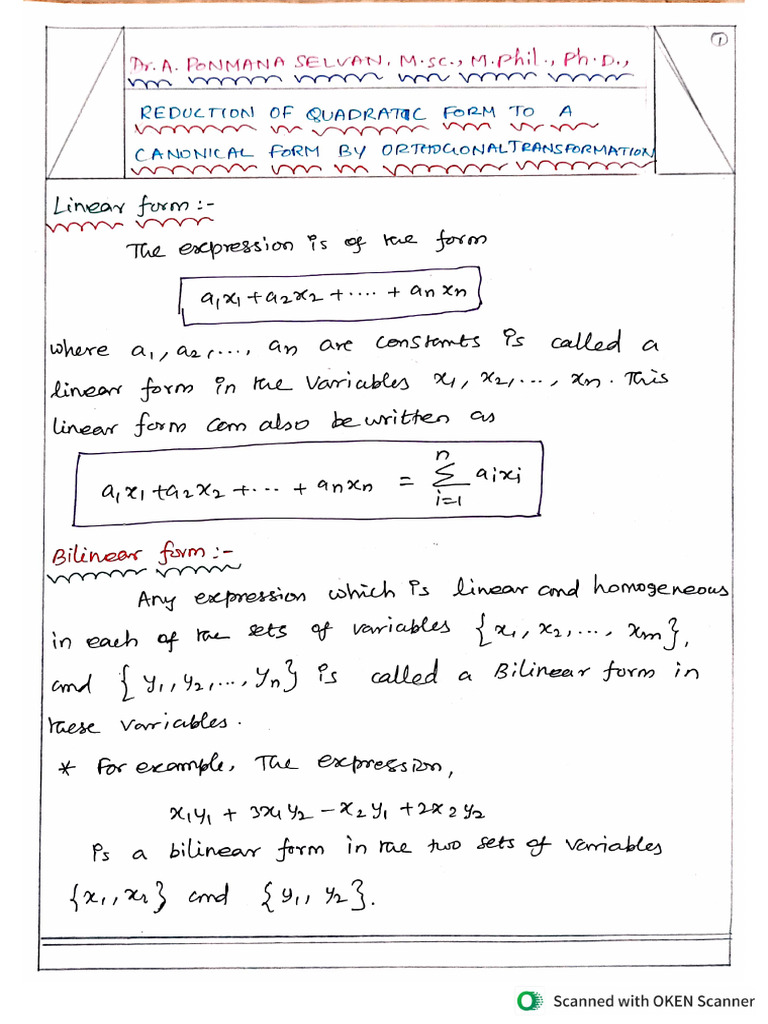 ①
Dr. A. PONMANA SELVAN, M.Sc., M.Phil., Ph.D.,
REDUCTION OF QUADRATIC FORM TO A
CANONICAL FORM BY ORTHOGONAL TRANSFORMATION
Linear form :-
The expression is of the form
a₁x₁ + a₂x₂ + .... + aₙxₙ
where a₁, a₂, ..., aₙ are constants is called a
linear form in the variables x₁, x₂, ..., xₙ. This
linear form can also be written as
a₁x₁ + a₂x₂ + ... + aₙxₙ = Σⁿᵢ₌₁ aᵢxᵢ
Bilinear form :-
Any expression which is linear and homogeneous
in each of the sets of variables {x₁, x₂, ..., xₘ},
and {y₁, y₂, ..., yₙ} is called a Bilinear form in
these variables.
* For example, The expression,
x₁y₁ + 3x₁y₂ - x₂y₁ + 2x₂y₂
is a bilinear form in the two sets of variables
{x₁, x₂} and {y₁, y₂}.
Scanned with OKEN Scanner